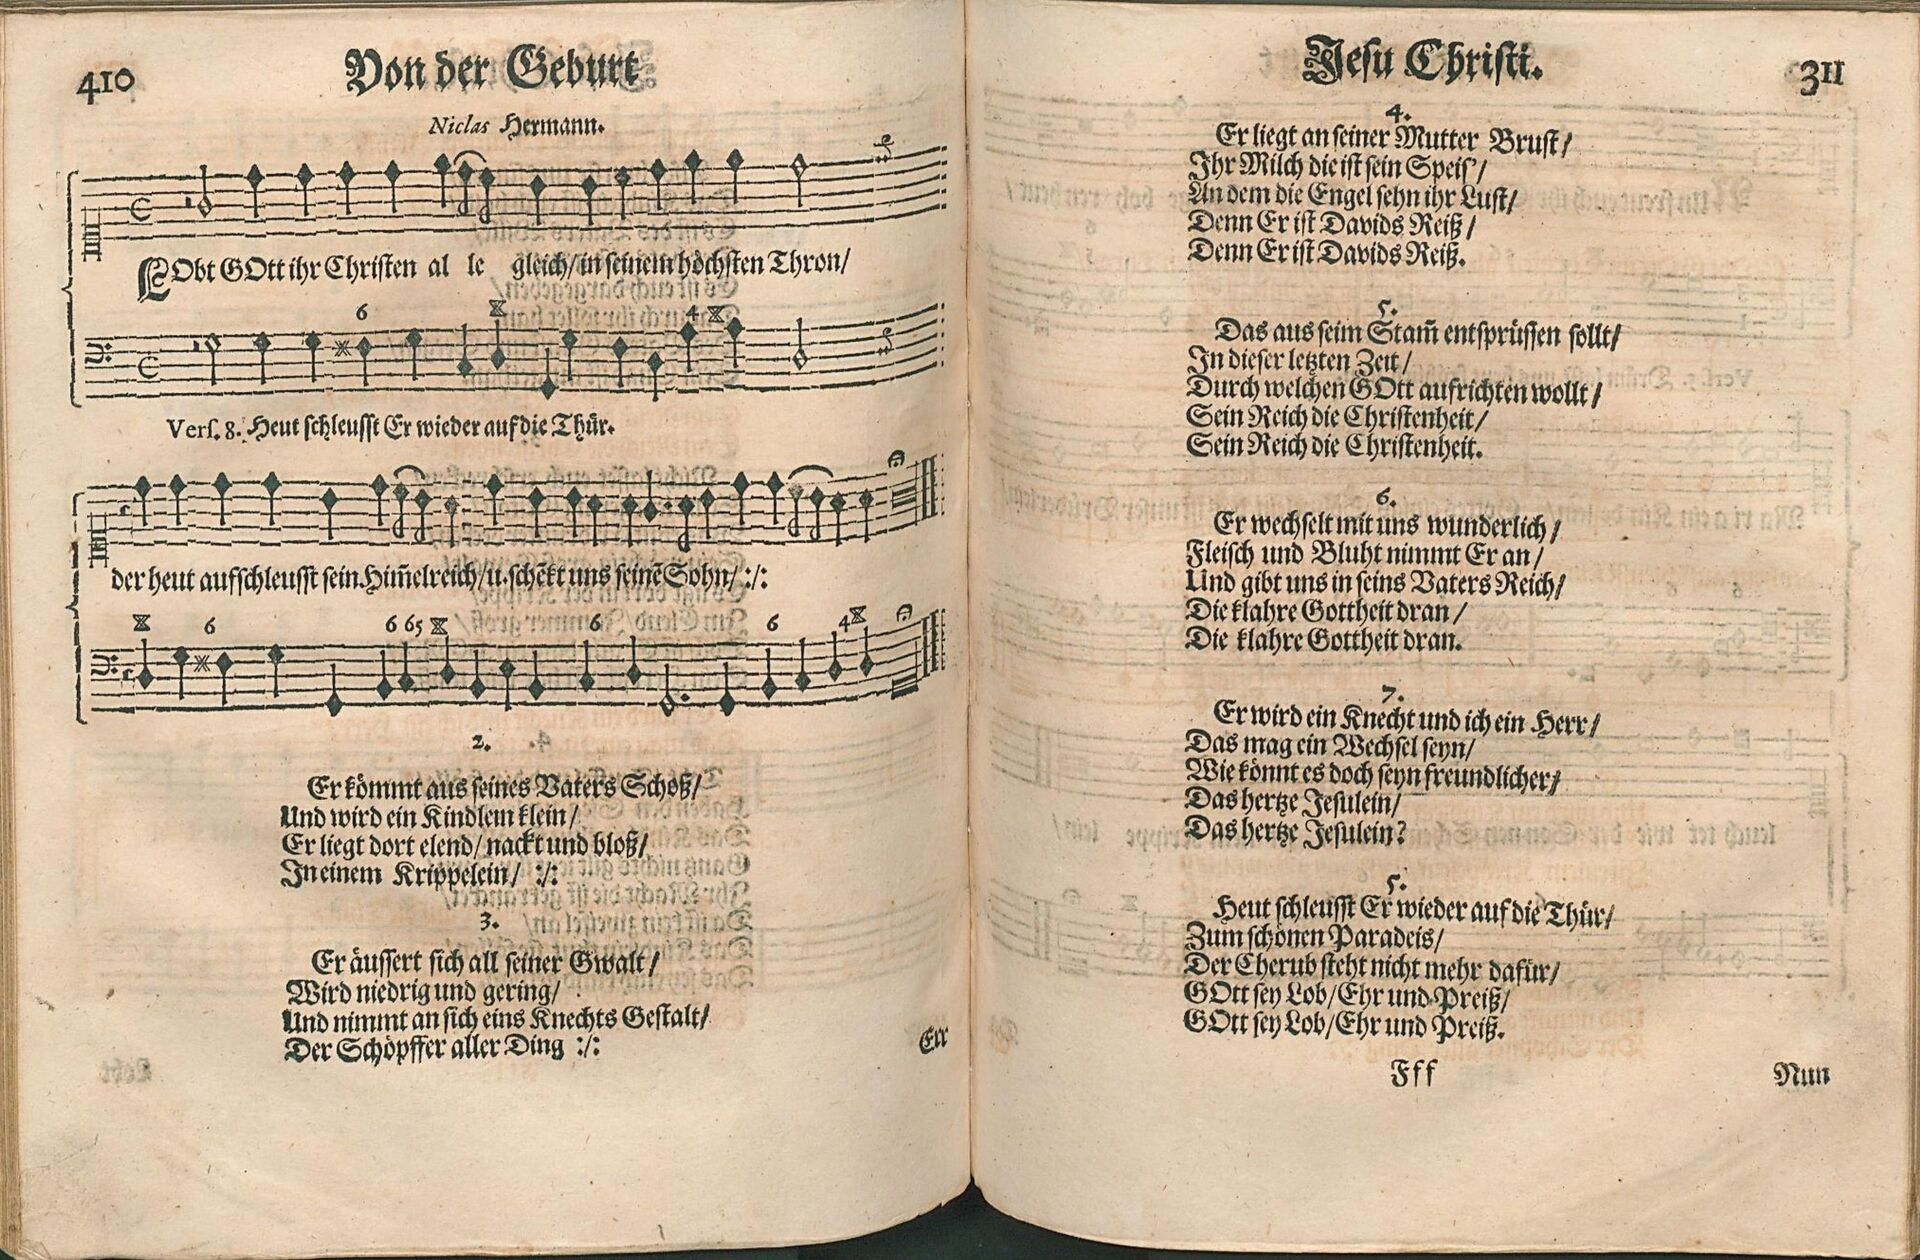 410
Von der Geburt
Niclas Hermann.
LObt GOtt ihr Christen al le gleich/ in seinem höchsten Thron/
6 4
Vers. 8. Heut schleusst Er wieder auf die Thür.
der heut aufschleusst sein Him̄elreich/ u. schēkt uns seinē Sohn/ :/:
6 6 65 6 6 4
2.
Er kömmt aus seines Vaters Schoß/
Und wird ein Kindlein klein/
Er liegt dort elend/ nackt und bloß/
In einem Krippelein/ :/:
3.
Er äussert sich all seiner Gwalt/
Wird niedrig und gering/
Und nimmt an sich eins Knechts Gestalt/
Der Schöpffer aller Ding :/:
Jesu Christi.
311
4.
Er liegt an seiner Mutter Brust/
Ihr Milch die ist sein Speis'/
An dem die Engel sehn ihr Lust/
Denn Er ist Davids Reiß/
Denn Er ist Davids Reiß.
5.
Das aus seim Stam̄ entsprüssen sollt/
In dieser letzten Zeit/
Durch welchen GOtt aufrichten wollt/
Sein Reich die Christenheit/
Sein Reich die Christenheit.
6.
Er wechselt mit uns wunderlich/
Fleisch und Bluht nimmt Er an/
Und gibt uns in seins Vaters Reich/
Die klahre Gottheit dran/
Die klahre Gottheit dran.
7.
Er wird ein Knecht und ich ein Herr/
Das mag ein Wechsel seyn/
Wie könnt es doch seyn freundlicher/
Das hertze Jesulein/
Das hertze Jesulein?
5.
Heut schleusst Er wieder auf die Thür/
Zum schönen Paradeis/
Der Cherub steht nicht mehr dafür/
GOtt sey Lob/ Ehr und Preiß/
GOtt sey Lob/ Ehr und Preiß.
Fff
Nun